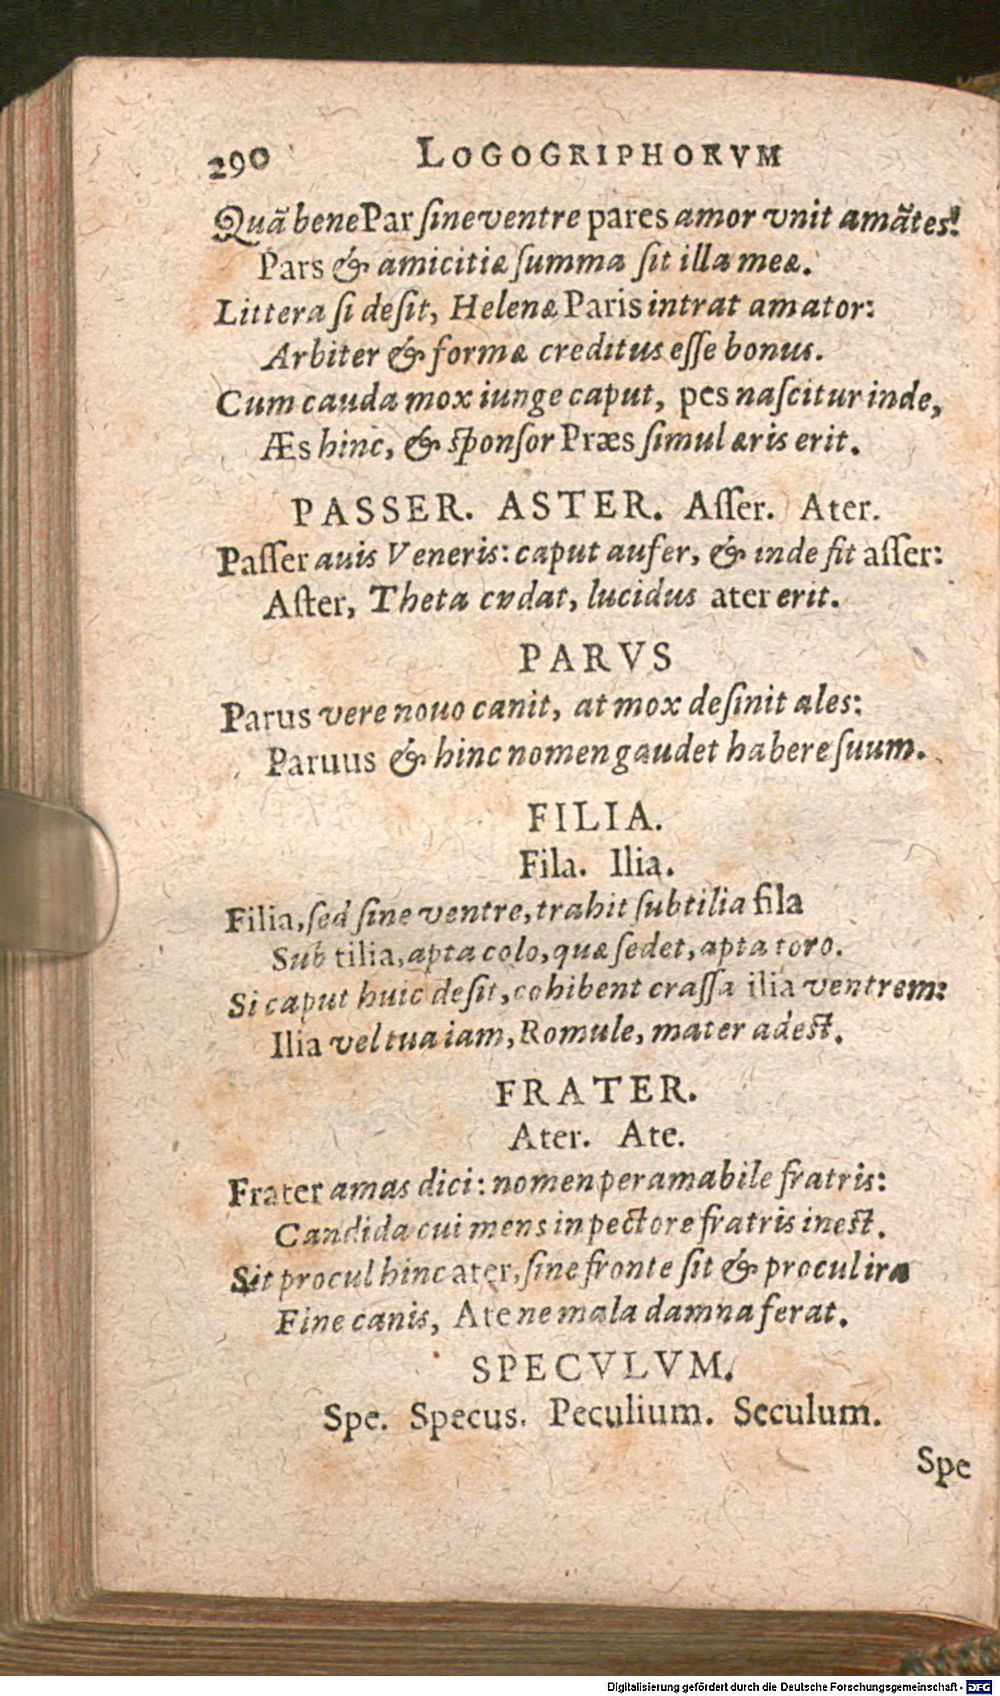 290 LOGOGRIPHORVM
Quã bene Par ſine ventre pares amor vnit amãtes!
Pars & amicitiæ ſumma ſit illa meæ.
Littera ſi deſit, Helenæ Paris intrat amator:
Arbiter & formæ creditus eſſe bonus.
Cum cauda mox iunge caput, pes naſcitur inde,
Æs hinc, & ſponſor Præs ſimul æris erit.
PASSER. ASTER. Aſſer. Ater.
Paſſer auis Veneris: caput aufer, & inde fit aſſer:
Aſter, Theta cvdat, lucidus ater erit.
PARVS
Parus vere nouo canit, at mox deſinit ales:
Paruus & hinc nomen gaudet habere ſuum.
FILIA.
Fila. Ilia.
Filia, ſed ſine ventre, trahit ſubtilia fila
Sub tilia, apta colo, quæ ſedet, apta toro.
Si caput huic deſit, cohibent craſſa ilia ventrem:
Ilia vel tua iam, Romule, mater adeſt.
FRATER.
Ater. Ate.
Frater amas dici: nomen peramabile fratris:
Candida cui mens in pectore fratris ineſt.
Sit procul hinc ater, ſine fronte ſit & procul ira
Fine canis, Ate ne mala damna ferat.
SPECVLVM.
Spe. Specus. Peculium. Seculum.
Spe
Digitalisierung gefördert durch die Deutsche Forschungsgemeinschaft - DFG